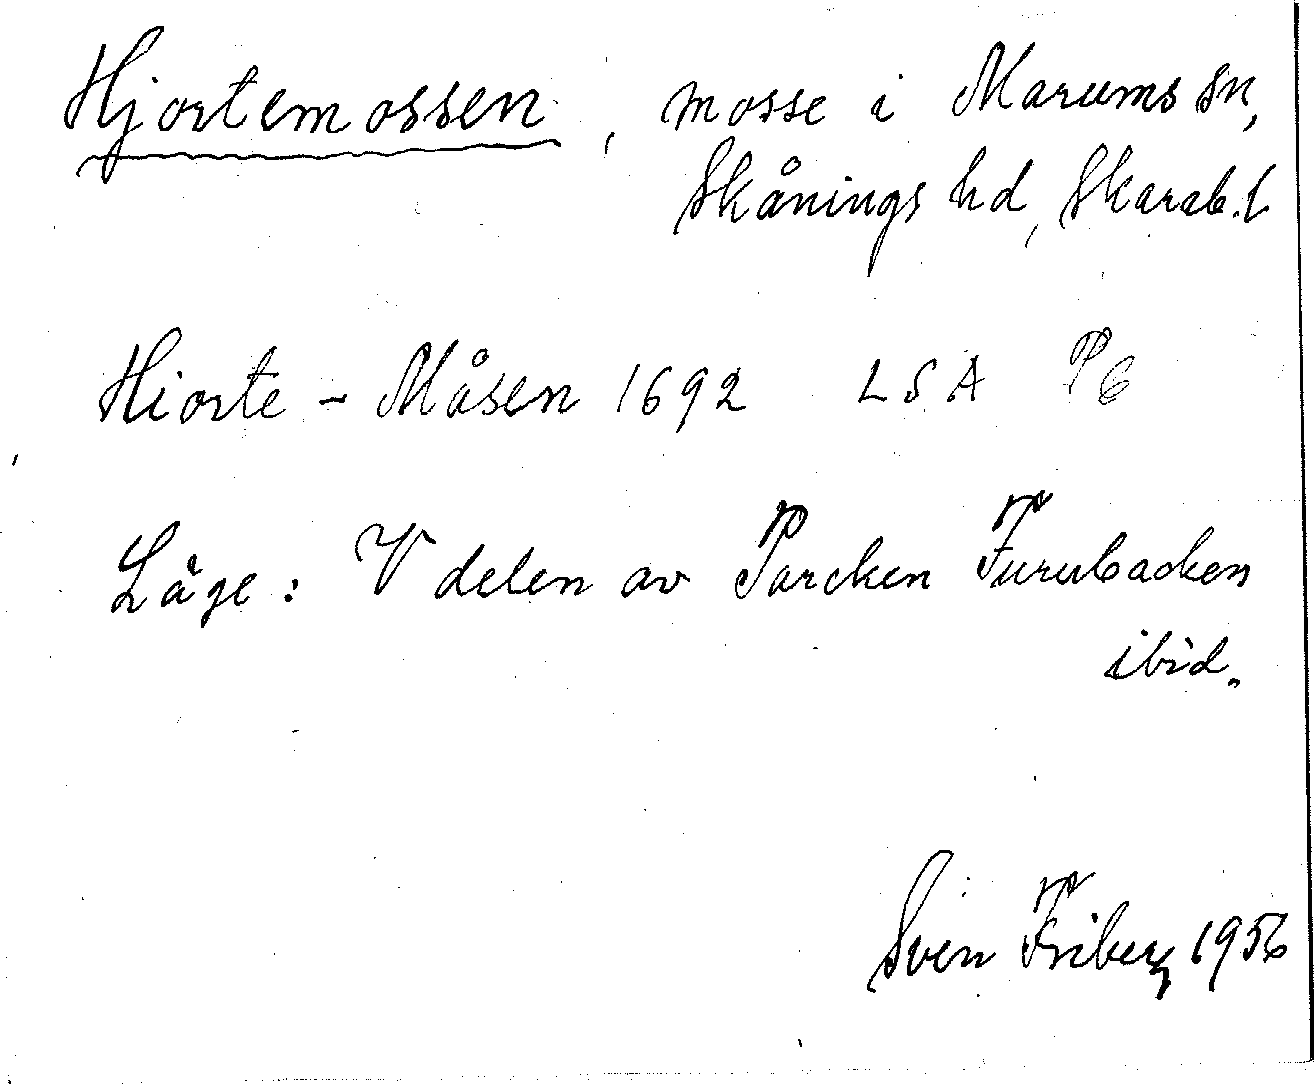 Hjortemossen, mosse i Marums sn,
Skånings hd, Skarab.l
Hiorte - Måsen 1692 LSA P6
Läge: V delen av Parcken Furubacken
ibid.
Sven Friberg 1956